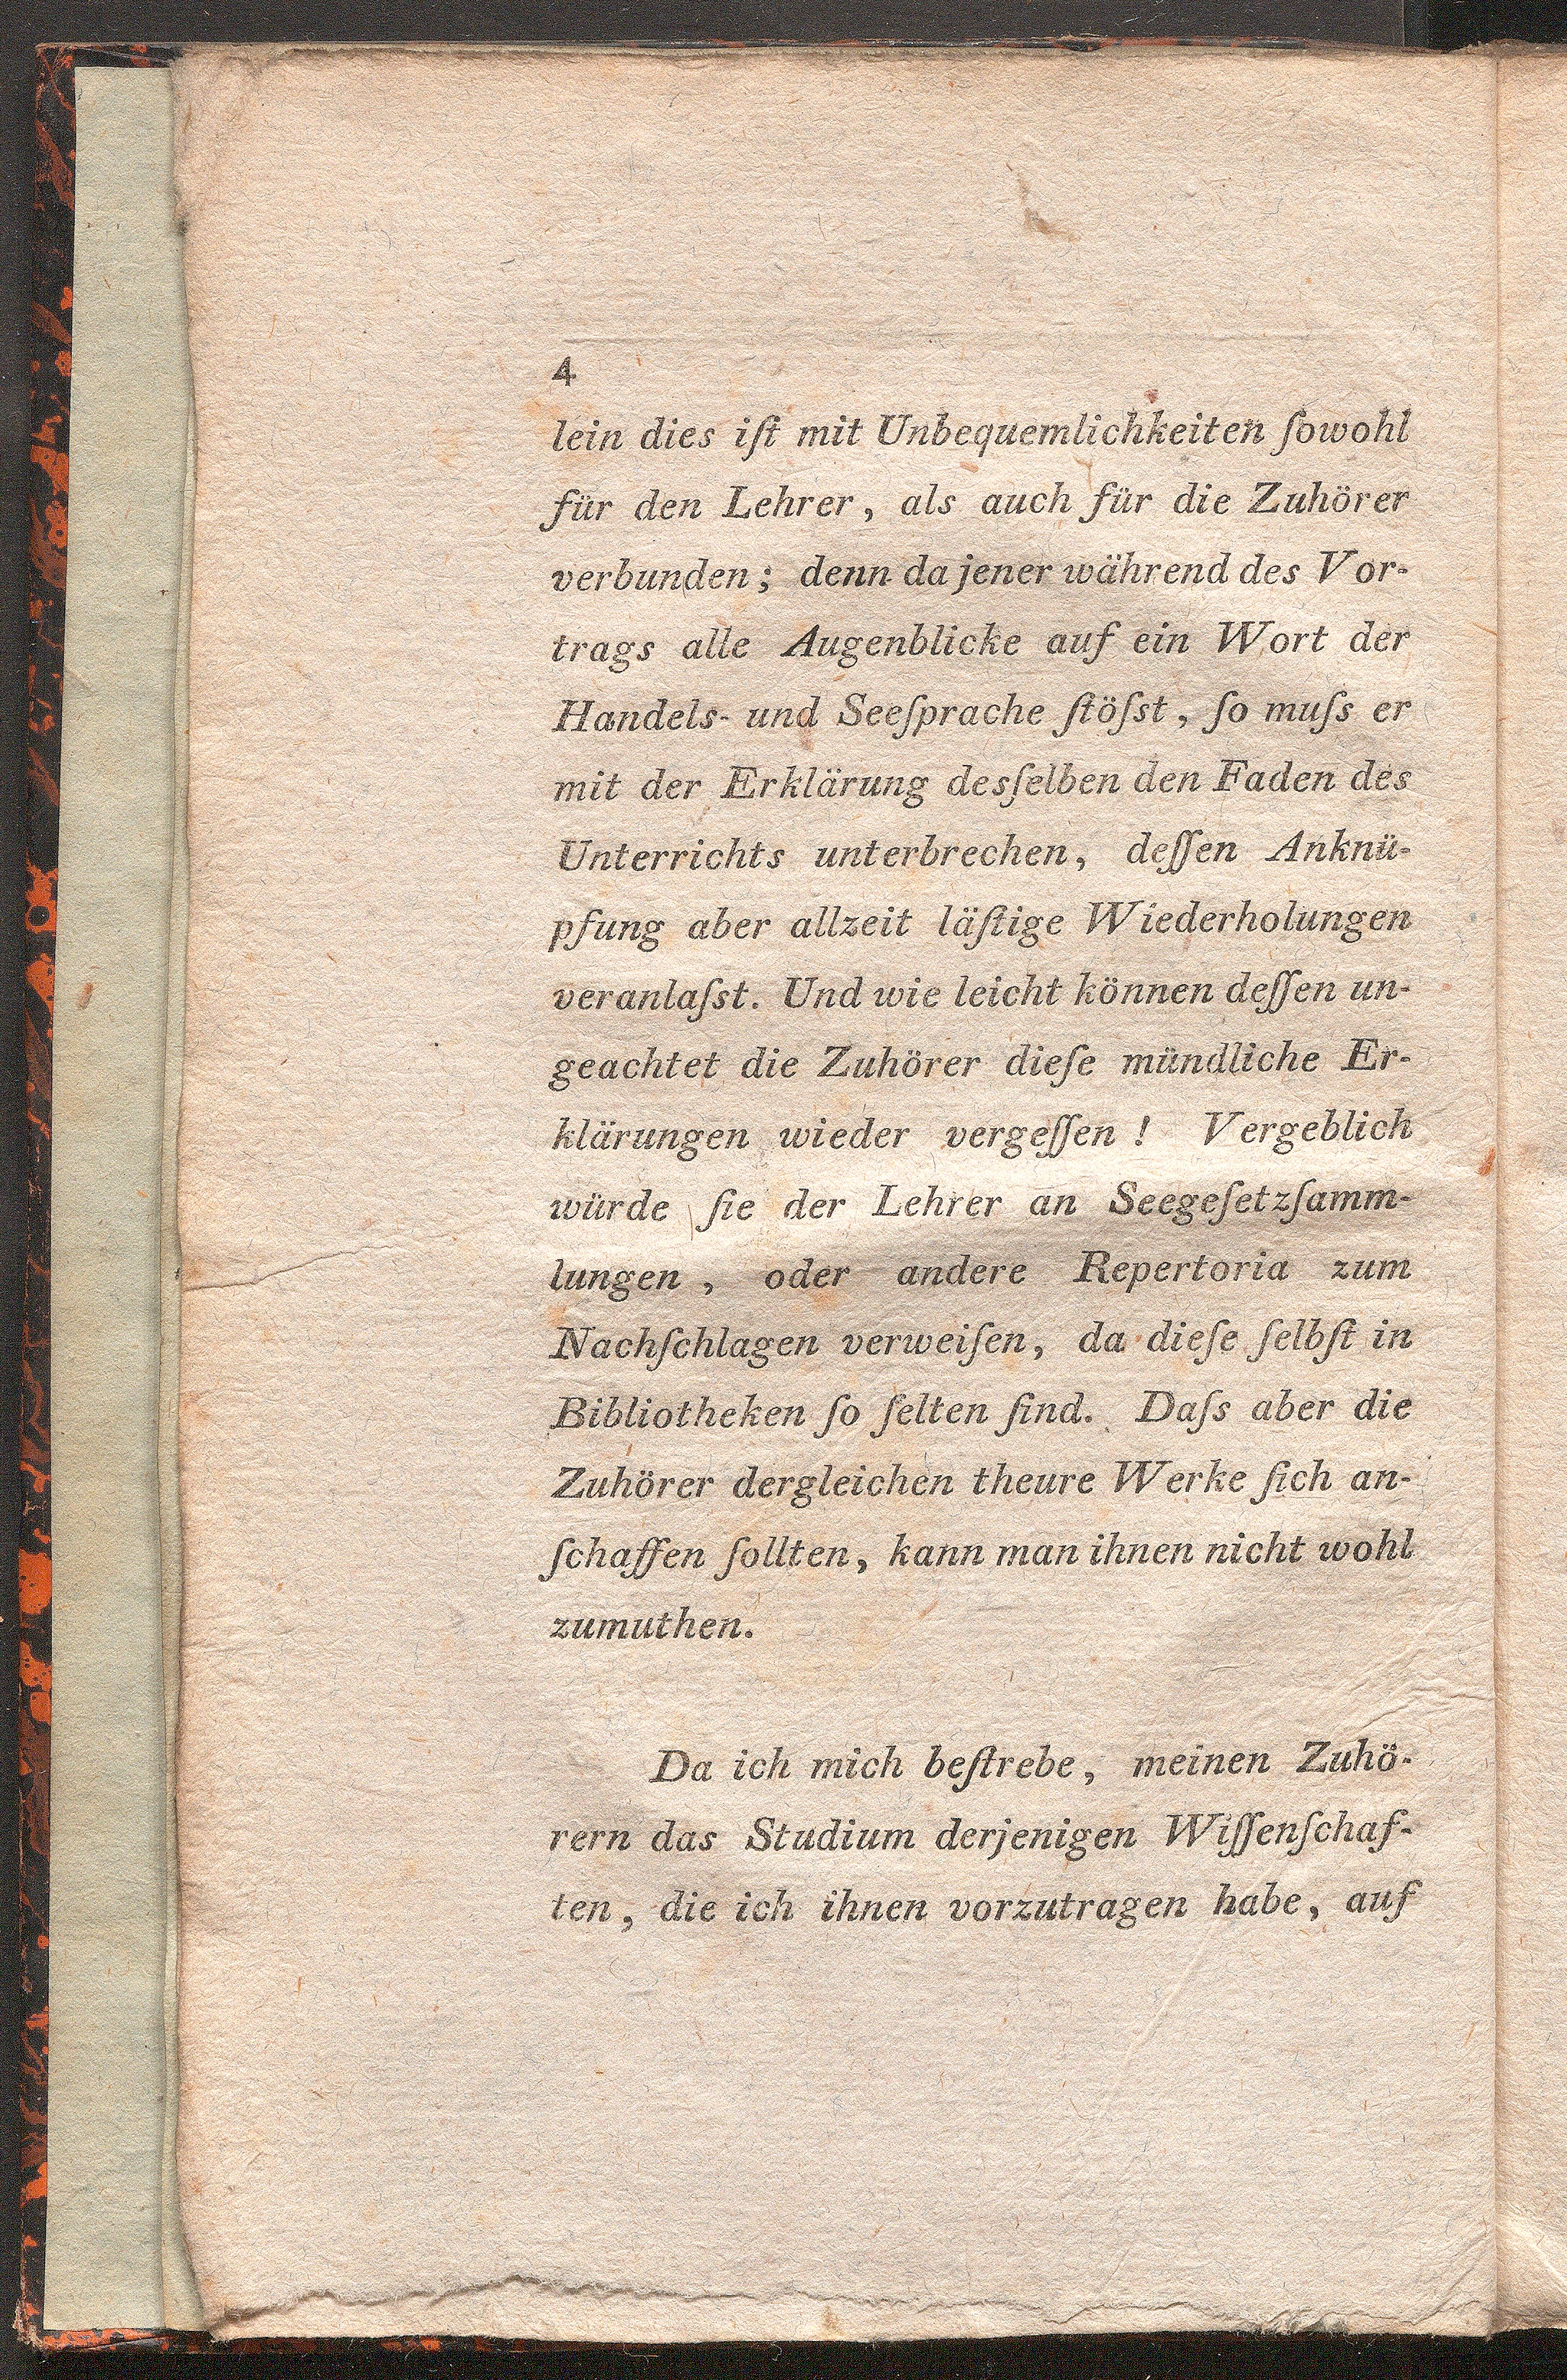 4
lein dies iſt mit Unbequemlichkeiten ſowohl
für den Lehrer, als auch für die Zuhörer
verbunden; denn da jener während des Vor-
trags alle Augenblicke auf ein Wort der
Handels- und Seeſprache ſtöſst, ſo muſs er
mit der Erklärung desſelben den Faden des
Unterrichts unterbrechen, deſſen Anknü-
pfung aber allzeit läſtige Wiederholungen
veranlaſst. Und wie leicht können deſſen un-
geachtet die Zuhörer dieſe mündliche Er-
klärungen wieder vergeſſen! Vergeblich
würde ſie der Lehrer an Seegeſetzſamm-
lungen, oder andere Repertoria zum
Nachſchlagen verweiſen, da dieſe ſelbſt in
Bibliotheken ſo ſelten ſind. Daſs aber die
Zuhörer dergleichen theure Werke ſich an-
ſchaffen ſollten, kann man ihnen nicht wohl
zumuthen.
Da ich mich beſtrebe, meinen Zuhö-
rern das Studium derjenigen Wiſſenſchaf-
ten, die ich ihnen vorzutragen habe, auf